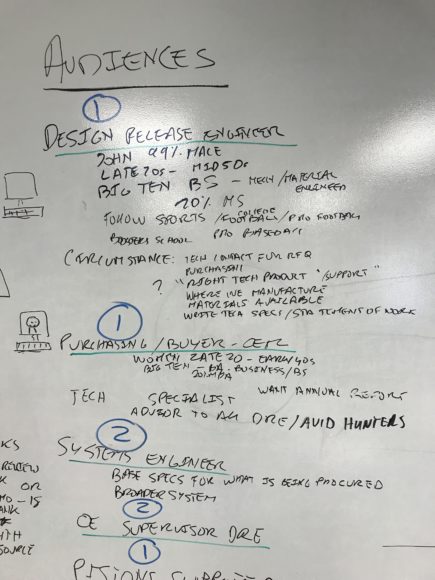 AUDIENCES
1
DESIGN RELEASE ENGINEER
JOHN 99% MALE
LATE 20s - MID 50s
BIG TEN BS - MECH/MATERIAL
ENGINEER
20% MS
FOLLOW SPORTS/COLLEGE FOOTBALL/PRO FOOTBALL
SCHOOL PRO BASEBALL
CIRCUMSTANCE: TECH CONTACT FOR RFQ
PURCHASING
? "RIGHT TECH PRODUCT" "SUPPORT"
WHERE WE MANUFACTURE
MATERIALS AVAILABLE
WRITE TECH SPECS/STATEMENT OF WORK
1
PURCHASING/BUYER - OEM
WOMEN LATE 20 - EARLY 40s
BIG TEN - BA - BUSINESS/BS
20% MBA
WANT ANNUAL REPORT
TECH SPECIALIST
ADVISOR TO ALL DRE/AVID HUNTERS
2
SYSTEMS ENGINEER
BASE SPECS FOR WHAT IS BEING PROCURED
BROADER SYSTEM
2
CE SUPERVISOR DRE
1
REVIEW
OR